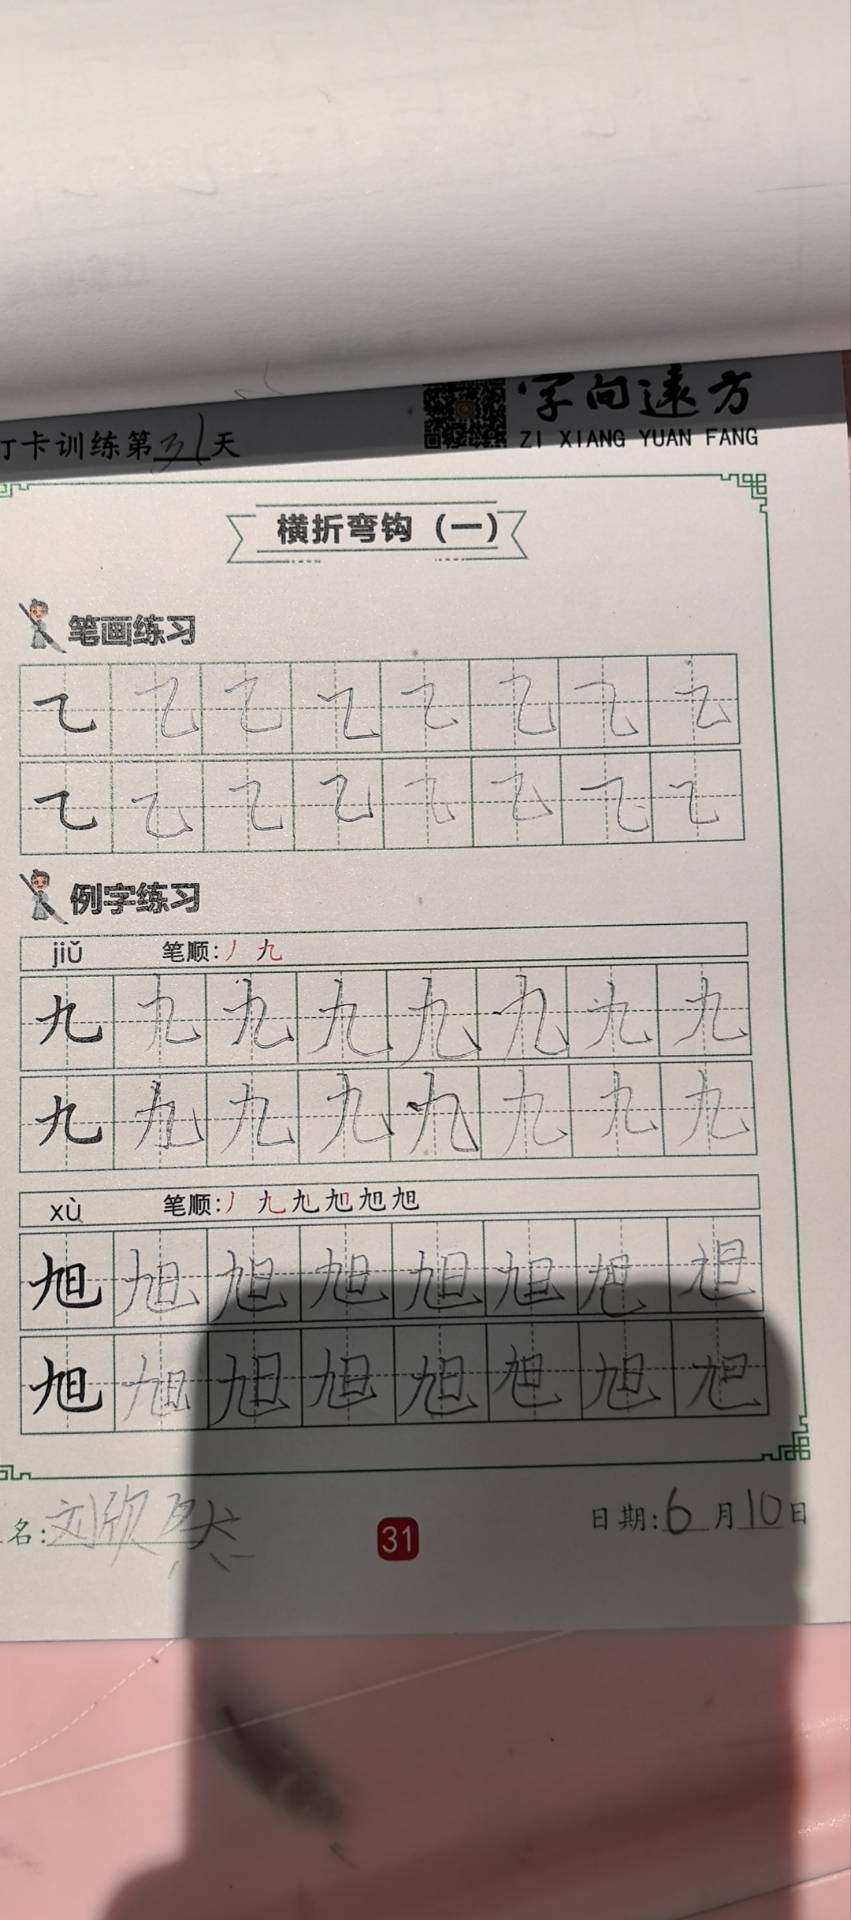 字向远方
ZI XIANG YUAN FANG
打卡训练第31天
横折弯钩（一）
笔画练习
例字练习
jiǔ 笔顺：丿 九
九 九 九 九 九 九 九 九
九 九 九 九 九 九 九 九
xù 笔顺：丿 九 九 旭 旭 旭
旭 旭 旭 旭 旭 旭 旭 旭
旭 旭 旭 旭 旭 旭 旭 旭
名：刘欣然
31
日期：6月10日